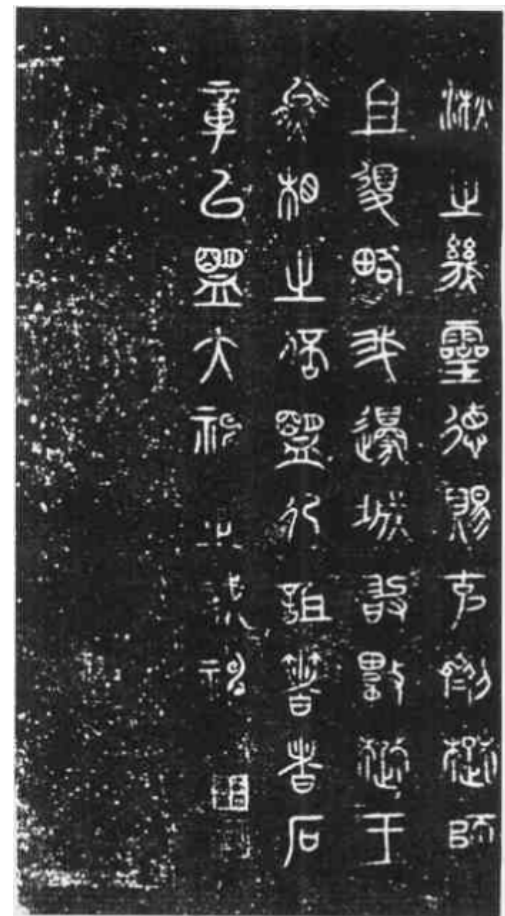 湫之幾靈德賜克劑楚師
且復略我邊城敢數楚王
熊相之倍盟犯詛箸者石
章以盟大神之威神